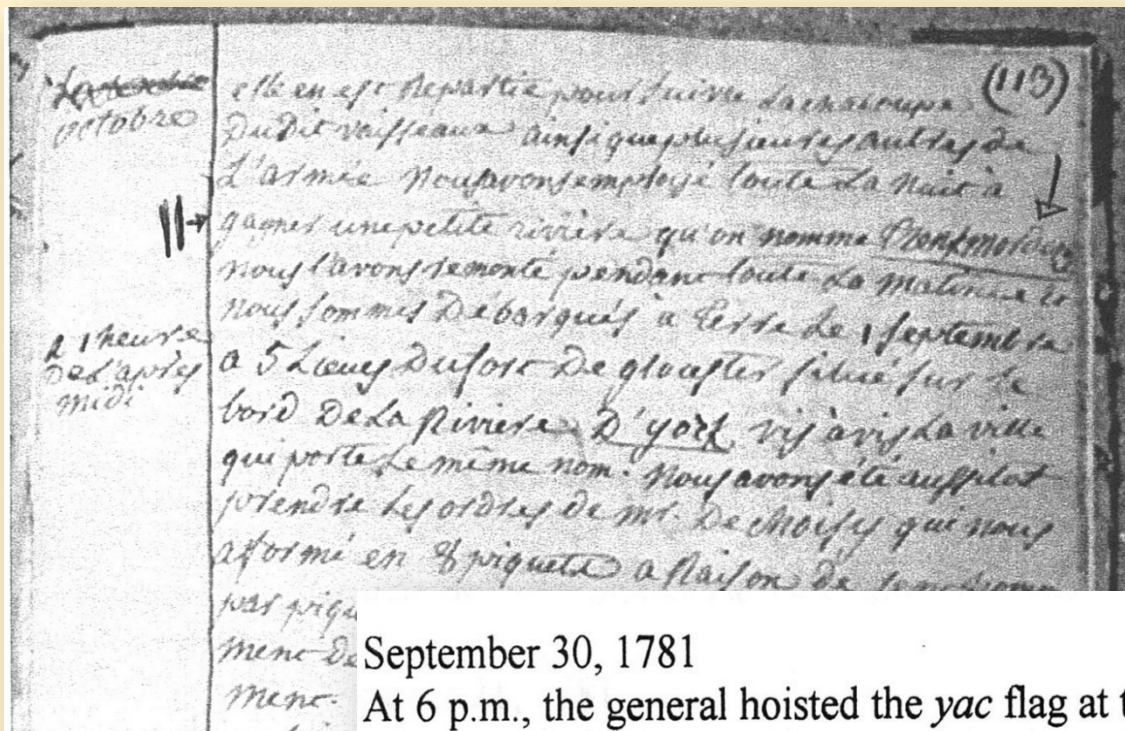 (113)
octobre
elle en est Repartie pour suivre La chaloupe
Du Dit vaisseaux ainsi que plusieures autres de
L'armée Nous avons emploïé toute La Nuit à
gagner une petite rivière qu'on nomme
nous l'avons remonté pendant toute La matinée et
nous sommes Débarqués à terre Le 1 septembre
à 1 heure
De L'après
midi
a 5 Lieues Du fort De glocester situé sur le
bord De La Riviere D'york vis avis La ville
qui porte Le même nom. Nous avons été aussitot
prendre Les ordres de mr. De choisy qui nous
a formé en 8 piquets a Raison de
par
ment de
ment.
September 30, 1781
At 6 p.m., the general hoisted the yac flag at